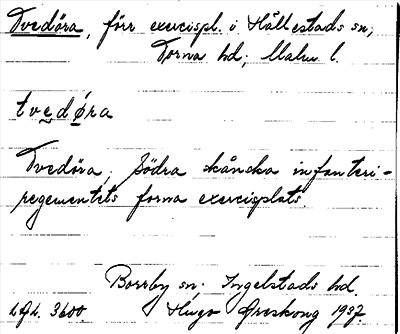 Tvedöra, förr exercispl. i Hållestads sn,
Torna hd, Malm. l.
tvedøra
Tvedöra, Södra skånska infanteri-
regementets forna exercisplats.
Borrby sn. Ingelstads hd.
Hugo Areskoug 1937